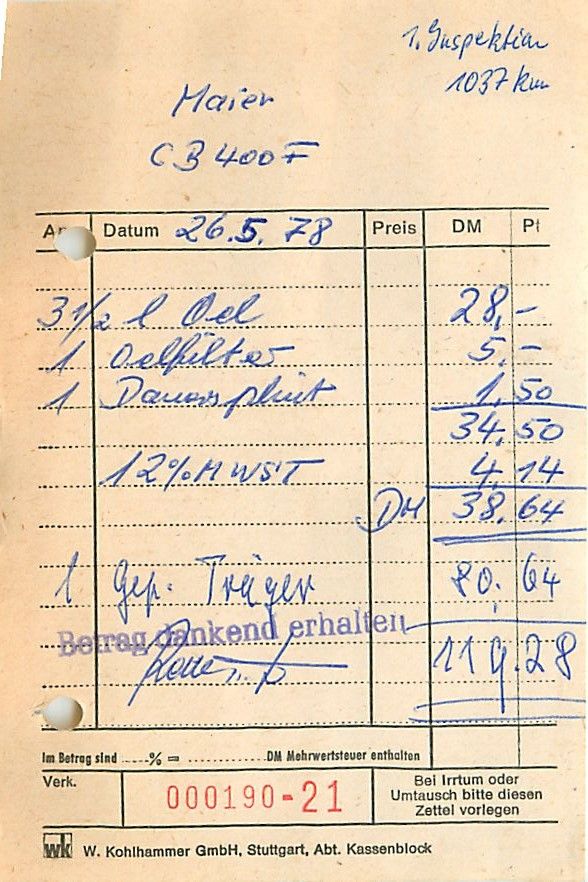 1. Inspektion
1037 km
Maier
CB 400 F
Datum 26.5.78 Preis DM Pf
3 1/2 l Oel 28,-
1 Oelfilter 5,-
1 Dauersplint 1,50
34,50
12% MWST 4,14
DM 38,64
1 Gep. Träger 80,64
Betrag dankend erhalten
119.28
Im Betrag sind ......% = .................. DM Mehrwertsteuer enthalten
Verk.
000190-21
Bei Irrtum oder
Umtausch bitte diesen
Zettel vorlegen
wk W. Kohlhammer GmbH, Stuttgart, Abt. Kassenblock